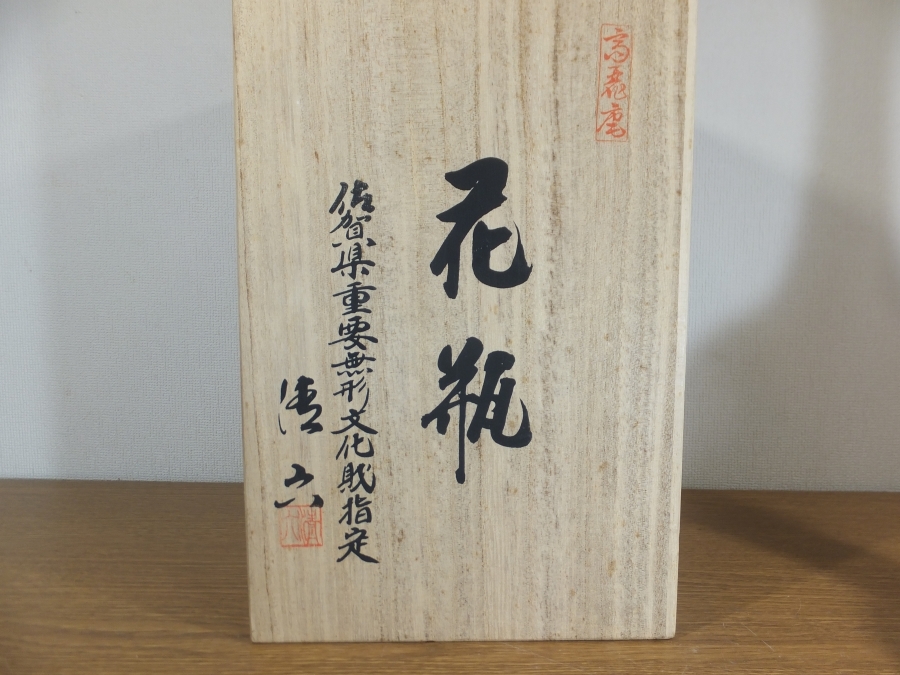 高麗庵
花瓶
佐賀県重要無形文化財指定
清六
清六